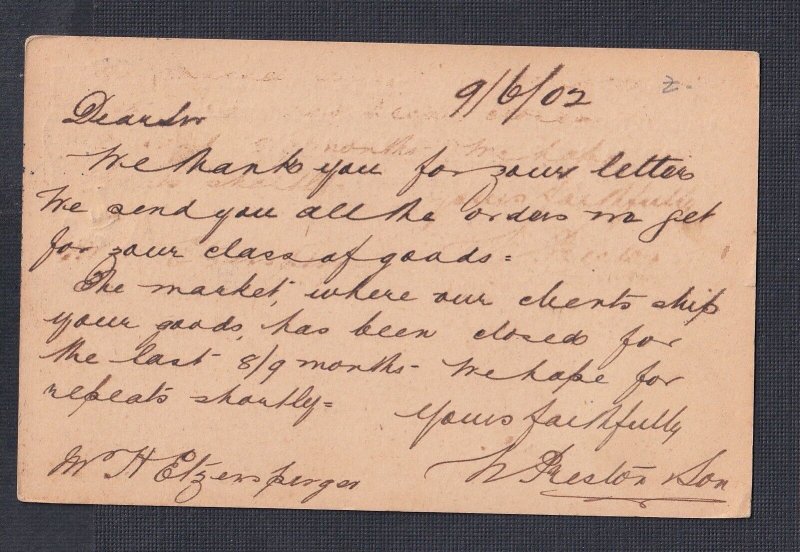 9/6/02
z.
Dear Sir
We thank you for your letter
We send you all the orders we get
for your class of goods =
The market, where our clients ship
your goods, has been closed for
the last 8/9 months - We hope for
repeats shortly =
Yours faithfully
Mr H Etzensperger
Preston & Son